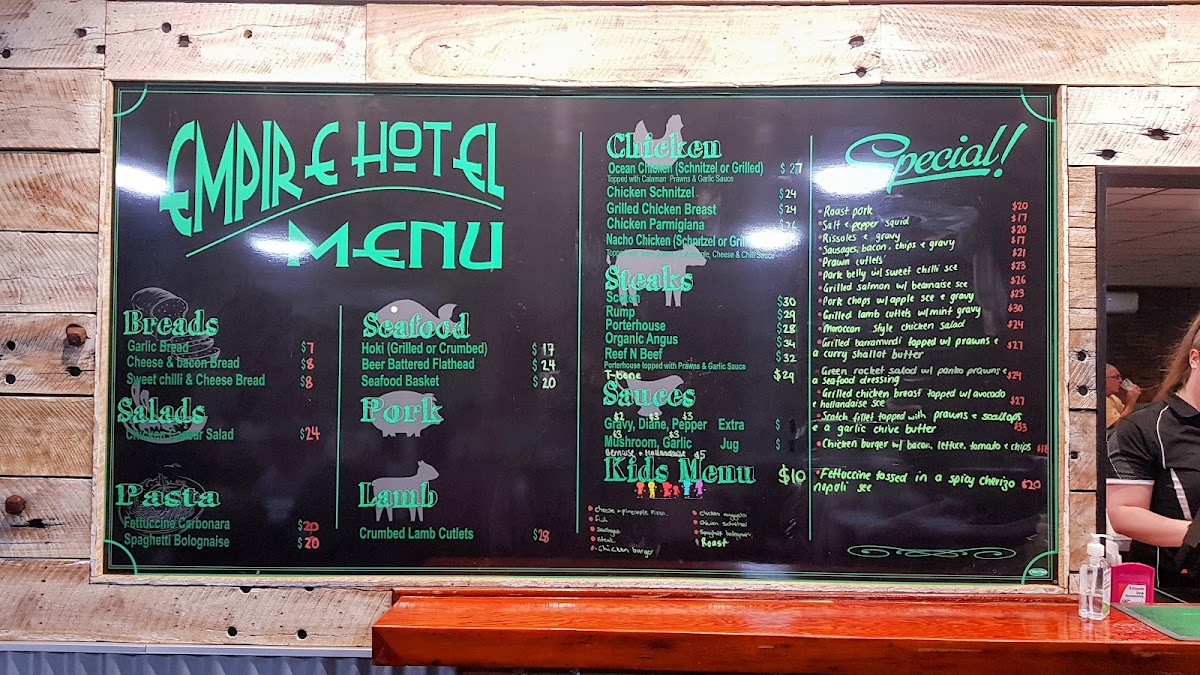 EMPIRE HOTEL
MENU
Breads
Garlic Bread $7
Cheese & bacon Bread $8
Sweet chilli & Cheese Bread $8
Salads
Chicken Caesar Salad $24
Pasta
Fettuccine Carbonara $20
Spaghetti Bolognaise $20
Seafood
Hoki (Grilled or Crumbed) $17
Beer Battered Flathead $24
Seafood Basket $20
Pork
Lamb
Crumbed Lamb Cutlets $28
Chicken
Ocean Chicken (Schnitzel or Grilled) $27
Topped with Calamari Prawns & Garlic Sauce
Chicken Schnitzel $24
Grilled Chicken Breast $24
Chicken Parmigiana $26
Nacho Chicken (Schnitzel or Grilled)
Cheese & Chilli Sauce
Steaks
Scotch $30
Rump $29
Porterhouse $28
Organic Angus $34
Reef N Beef $32
Porterhouse topped with Prawns & Garlic Sauce
T-bone $29
Sauces
$2 $3 $3
Gravy, Diane, Pepper Extra $
$3 $3
Mushroom, Garlic Jug $
Bernaise + Hollandaise $5
Kids Menu $10
cheese + pineapple Pizza
fish
sausages
steak
Chicken burger
chicken nuggets
chicken schnitzel
Spaghetti bolognaise
Roast
Special!
Roast pork $20
Salt & pepper squid $17
Rissoles & gravy $20
Sausages, bacon, chips & gravy $17
Prawn cutlets $21
Pork belly w/ sweet chilli sce $23
Grilled salmon w/ bearnaise sce $26
Pork chops w/ apple sce & gravy $23
Grilled lamb cutlets w/ mint gravy $30
Moroccan style chicken salad $24
Grilled barramundi topped w/ prawns &
a curry shallot butter $27
Green rocket salad w/ panko prawns &
a seafood dressing $24
Grilled chicken breast topped w/ avocado
& hollandaise sce $27
Scotch fillet topped with prawns & scallops
& a garlic chive butter $33
Chicken burger w/ bacon, lettuce, tomato & chips $18
Fettuccine tossed in a spicy cherizo
napoli sce $20